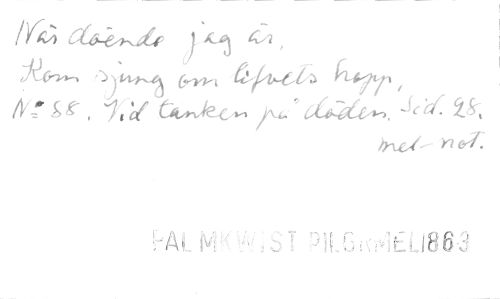 När döende jag är,
Kom sjung om lifvets hopp,
No 88. Vid tanken på döden. Sid. 28.
mel-not.
PALMKWIST PILGRMEL1863